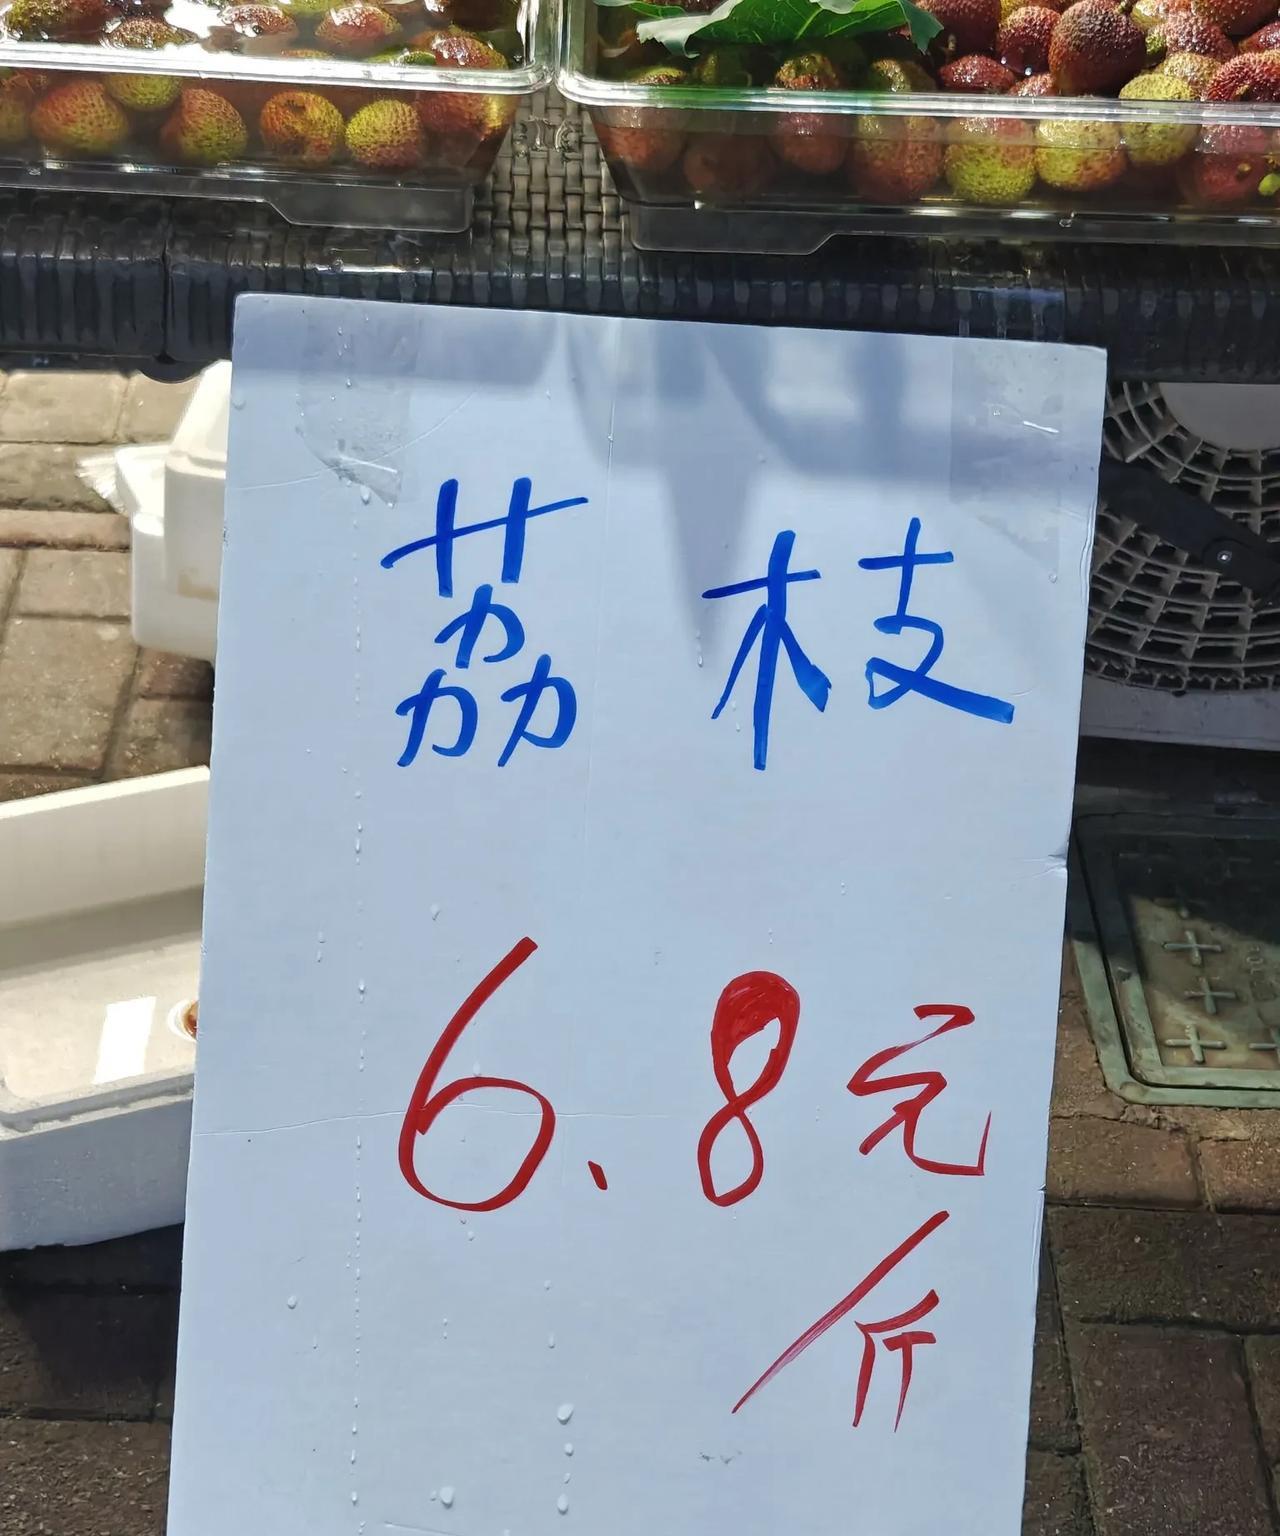 荔枝
6.8元
/斤